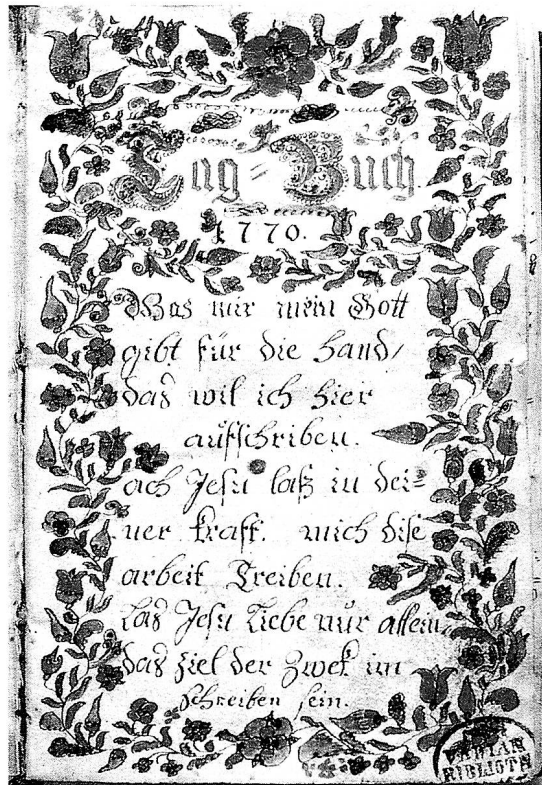 Tag = Buch.
1770.
Was mir mein Gott
gibt für die Hand/
das wil ich hier
aufschriben.
ach Jesu laß in dei=
ner krafft. mich dise
arbeit Treiben.
Las Jesu Liebe nur allein,
das ziel der Zwek im
schreiben sein.
BIBLIOTH